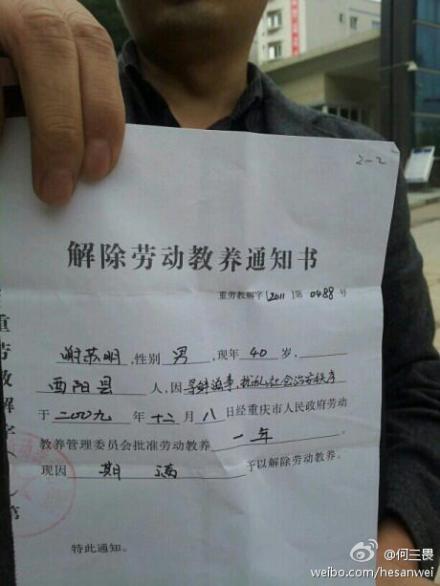 2-2
解除劳动教养通知书
重劳教解字[2011]第0488号
谢苏明,性别 男,现年 40 岁,
酉阳县 人,因寻衅滋事,扰乱社会治安秩序
于二00九年十二月八日经重庆市人民政府劳动
教养管理委员会批准劳动教养 一年
现因 期满 予以解除劳动教养。
特此通知。
重劳教解字
第
@何三畏
weibo.com/hesanwei